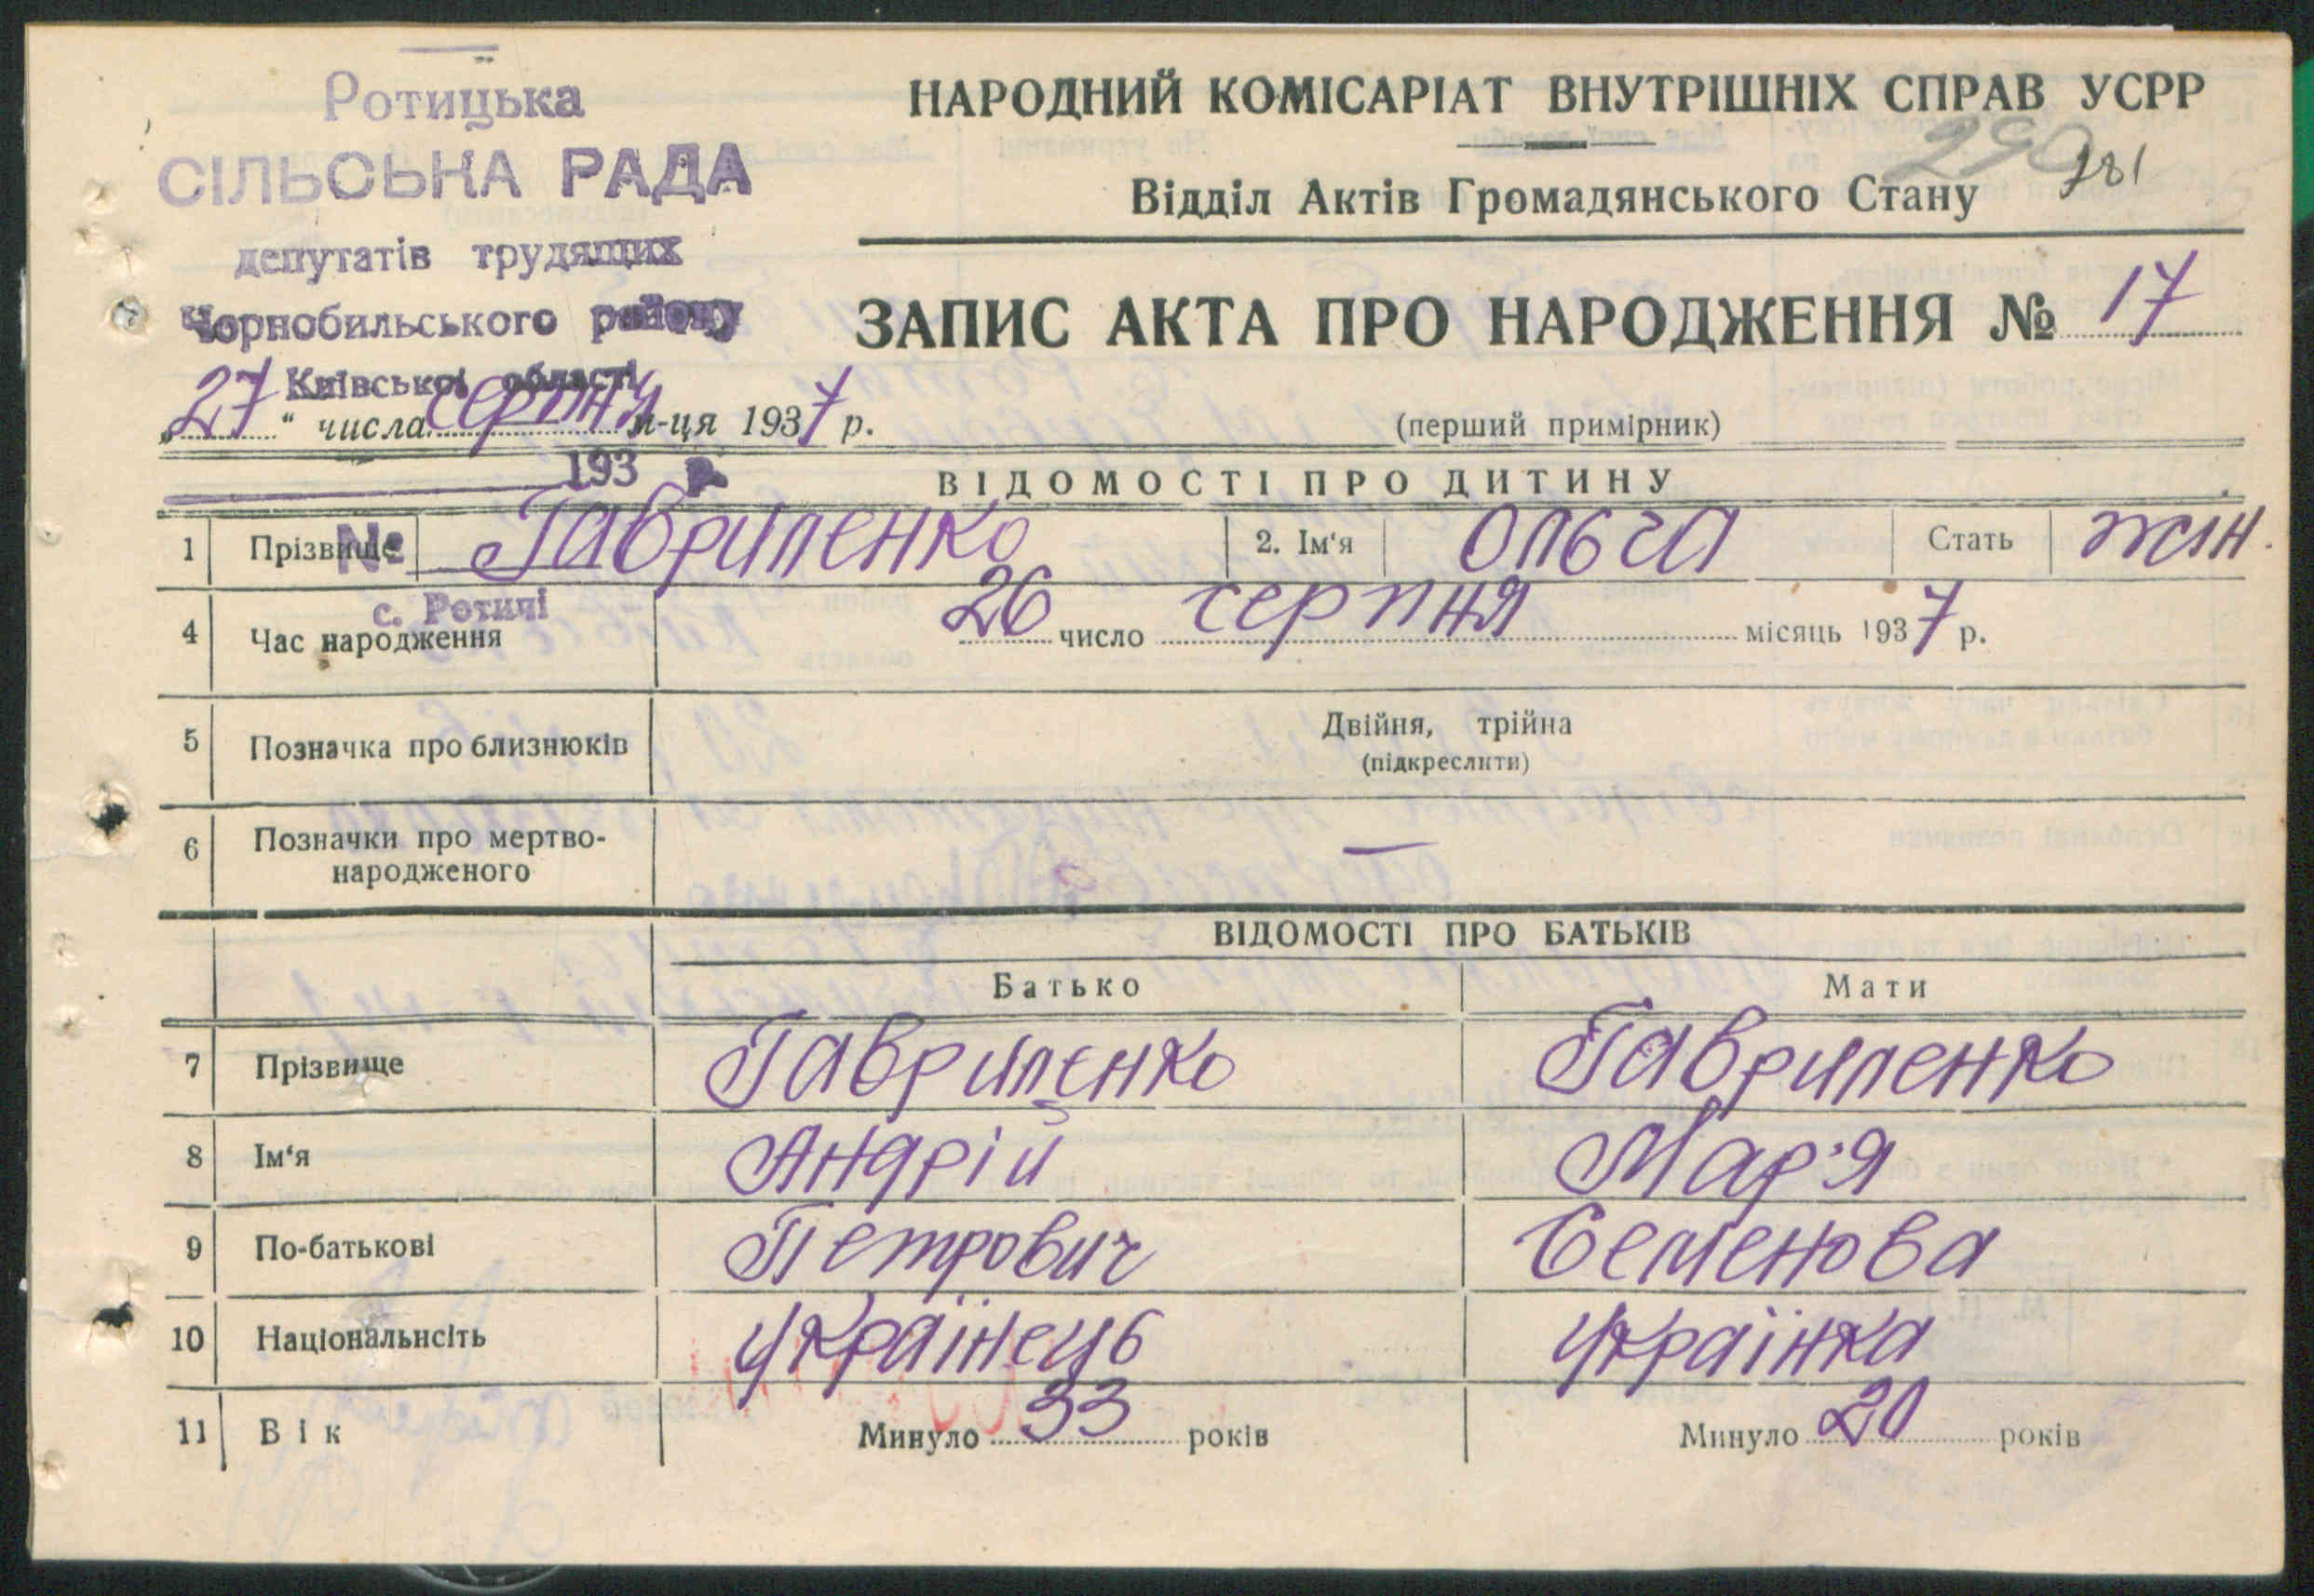 Ротицька
СІЛЬСЬКА РАДА
депутатів трудящих
Чорнобильського району
Київської області
193 р.
№
с. Ротичі
НАРОДНИЙ КОМІСАРІАТ ВНУТРІШНІХ СПРАВ УСРР
290 281
Відділ Актів Громадянського Стану
ЗАПИС АКТА ПРО НАРОДЖЕННЯ № 17
„27“ числа серпня м-ця 1937 р.
(перший примірник)
ВІДОМОСТІ ПРО ДИТИНУ
1 Прізвище Гавриленко 2. Ім‘я Ольга Стать жін.
4 Час народження 26 число серпня місяць 1937 р.
5 Позначка про близнюків Двійня, трійна
(підкреслити)
6 Позначки про мертво-
народженого —
ВІДОМОСТІ ПРО БАТЬКІВ
Батько Мати
7 Прізвище Гавриленко Гавриленко
8 Ім‘я Андрій Мар'я
9 По-батькові Петрович Семенова
10 Національнсіть Українець Українка
11 Вік Минуло 33 років Минуло 20 років